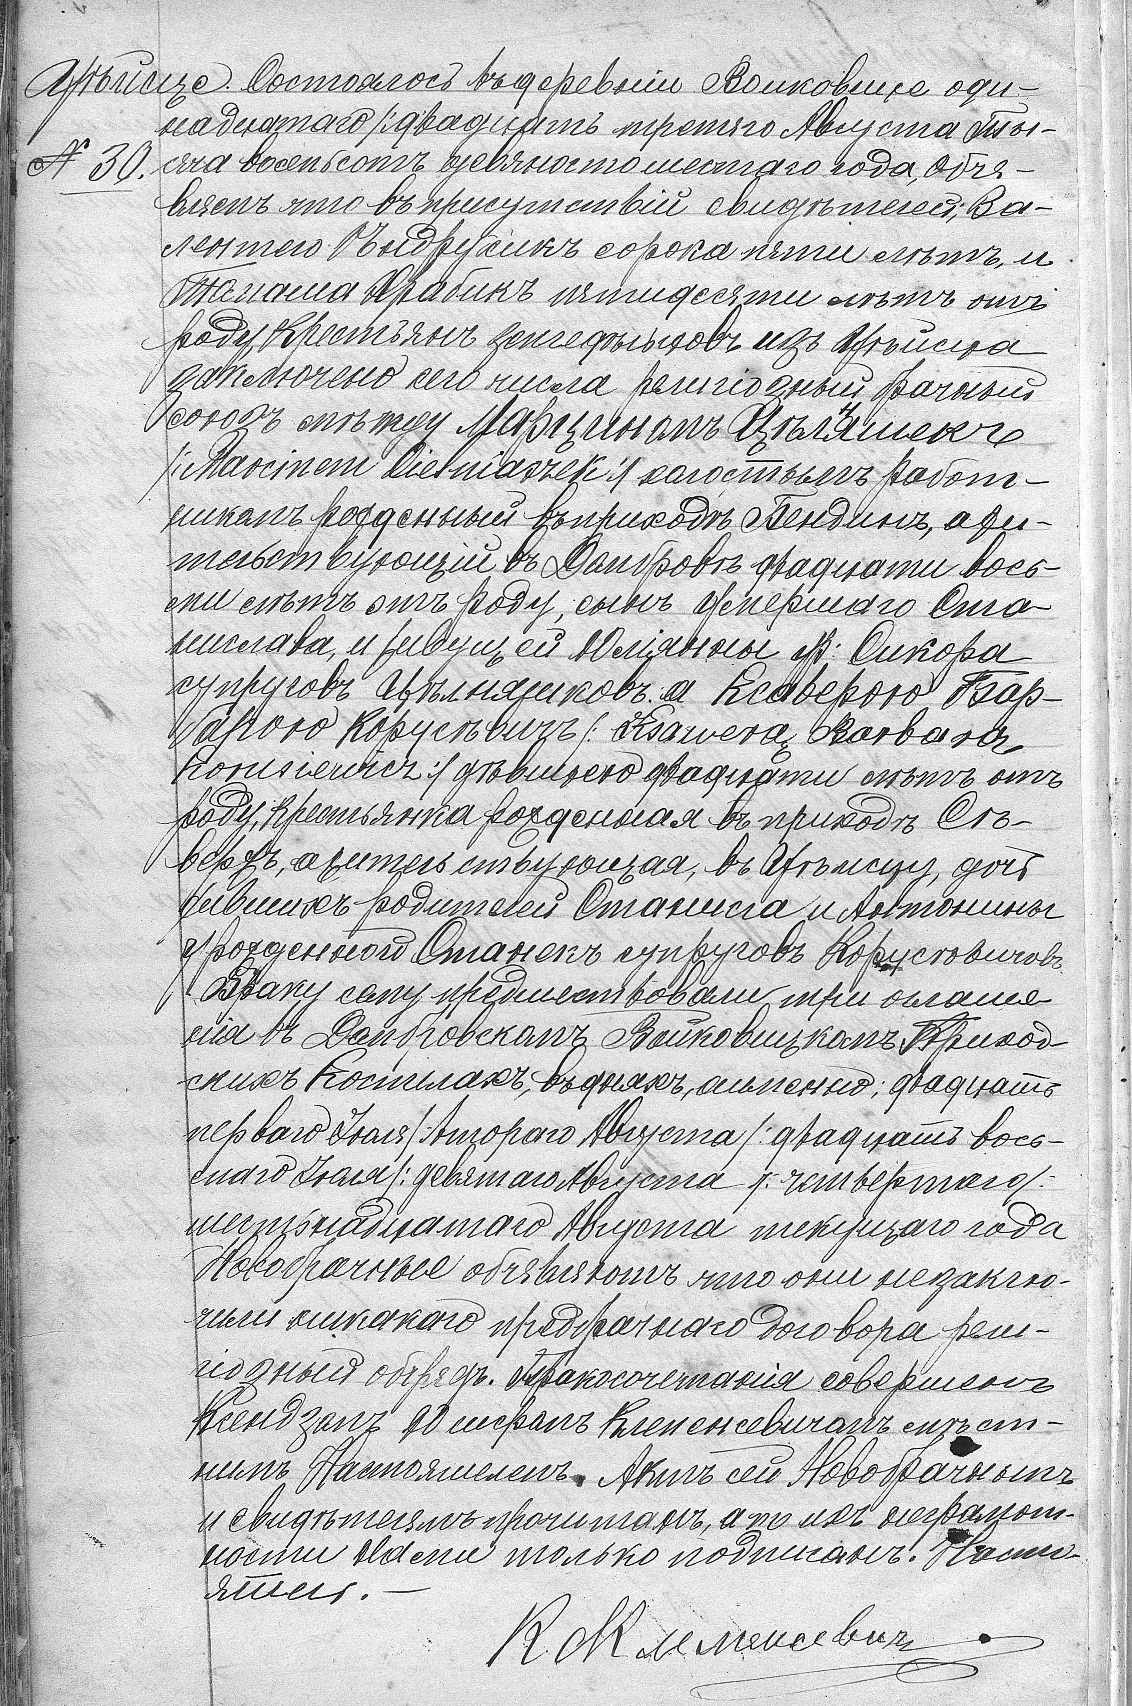 Цѣписце. Состоялось въ деревни Войковице оди-
надцатаго /:двадцать третяго Августа Ты-
№ 30. сяча восемьсотъ девяностошестаго года, Объя-
вляемъ что въ присутствій свидѣтелей; Ва-
лентего Ѣндрусикъ сорока пяти лѣтъ, и
Томаша Храбикъ пятидесяти лѣтъ отъ
роду крестьянъ изъ
заключено сего числа религіозный брачный
союзъ между Марциномъ Цѣлняшекъ
/:Marcinem Cielniaszek:/ холостымъ работ-
никомъ рожденный въ приходѣ Бендинъ, жи-
тельствующій въ Домбровѣ двадцати вось-
ми лѣтъ отъ роду, сынъ умершаго Ста-
нислава, и живущей Юліянны Сикора
супруговъ Цѣлняшковъ. а Ксаверою Бар-
барою Корусѣвичъ /: Ksawerą Barbarą
Korusiewicz:/ дѣвицею двадцати лѣтъ отъ
роду, крестьянка рожденная въ приходѣ Сѣ-
вержъ, жительствующая, въ дочь
жившихъ родителей Станисла и Антонины
урожденной Станекъ супруговъ Корусѣвичовъ
Браку сему предшествовали три оглаше
нія въ Домбровскомъ Войковицкомъ Приход-
скихъ Костелахъ, въ дняхъ, именно; двадцать
перваго Іюля /:Втораго Августа /: двадцать вось-
маго Іюля /: девятаго Августа /: четвертаго /:
шестьнадцатаго Августа текущаго года
Новобрачные объявляютъ что они незаклю-
чили никакаго предбрачнаго договора рели-
гіозный обрядъ. Бракосочетанія совершенъ
Ксендзомъ Клеменсевичомъ мѣст-
нымъ Настоятелемъ. Актъ сей Новобрачнымъ
и свидѣтелямъ прочитанъ, а по ихъ неграмот-
ности Нами только подписанъ. Насто-
ятель. —
К. Клеменсевичъ